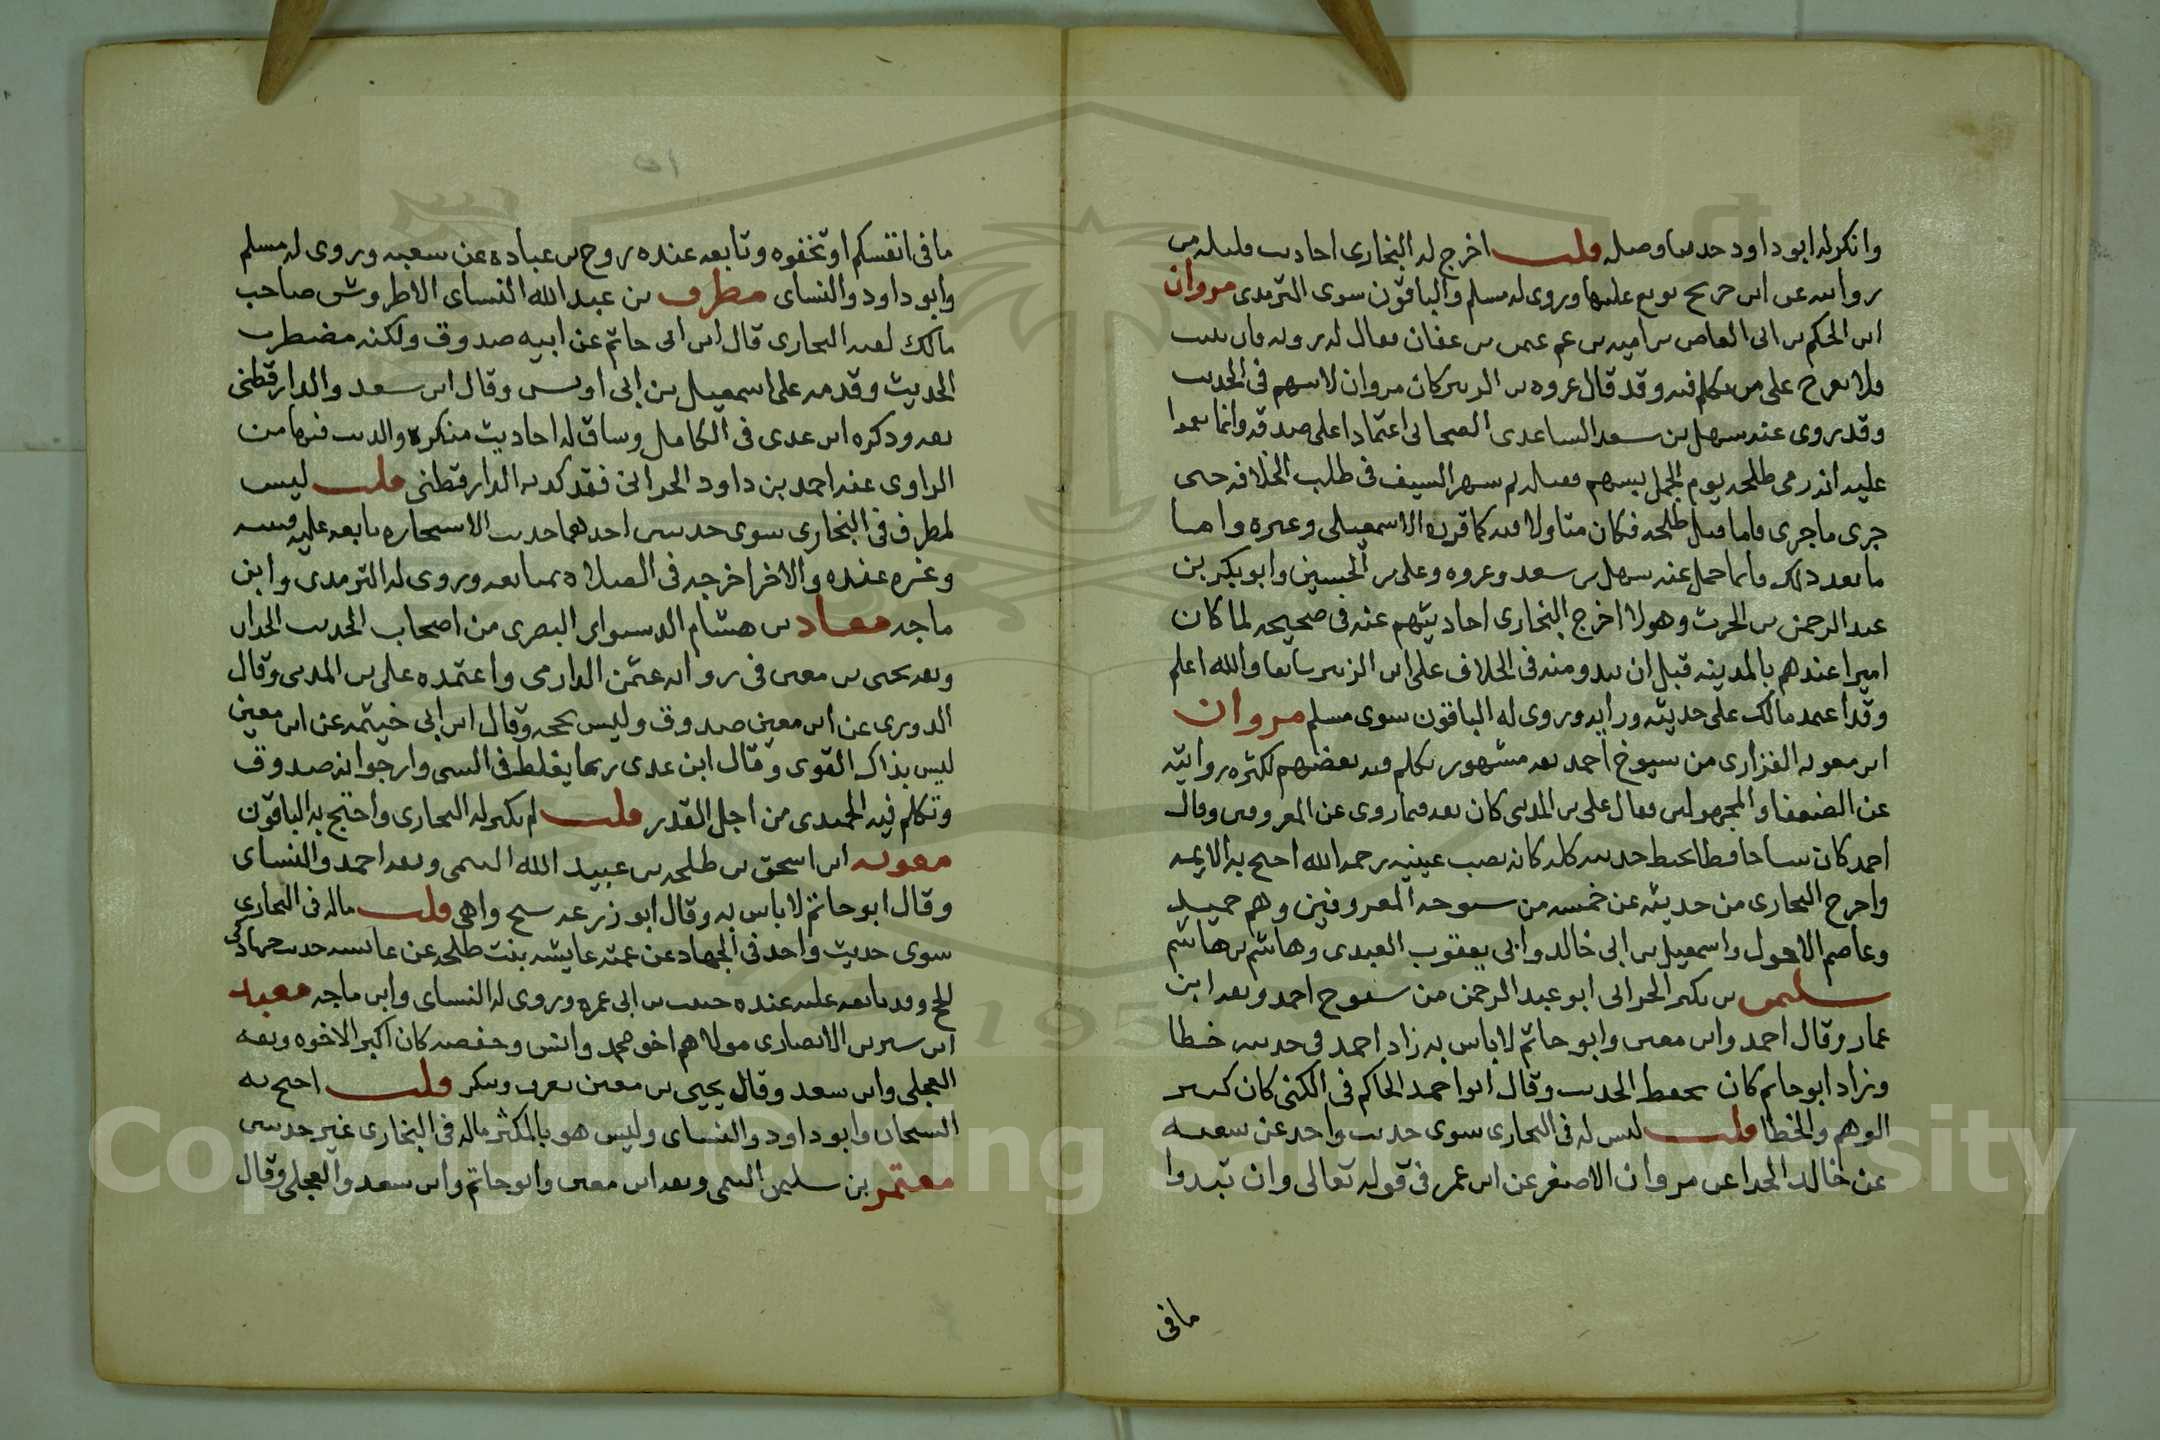 وانكر له ابو داود حديثا وصله قلت اخرج له البخاري احاديث قليله من
روايته عن ابن جريج توبع عليها وروى له مسلم والباقون سوى الترمذي مروان
ابن الحكم بن ابي العاص بن اميه بن عم عثمن بن عفان يقال له رويه فان ثبتت
فلا يعرج على من تكلم فيه وقد قال عروه بن الزبير كان مروان لا يتهم في الحديث
وقد روى عنه سهل بن سعد الساعدي الصحابي اعتمادا على صدقه وانما نقموا
عليه انه رمى طلحه يوم الجمل بسهم فقتله ثم شهر السيف في طلب الخلافه حتى
جرى ما جرى فاما قتل طلحه فكان متاولا فيه كما قرره الاسمعيلي وغيره واما
ما بعد ذلك فانما حمل عنه سهل بن سعد وعروه وعلي بن الحسين وابو بكر بن
عبد الرحمن بن الحرث وهولا اخرج البخاري احاديثهم عنه في صحيحه لما كان
اميرا عندهم بالمدينه قبل ان يبدو منه في الخلاف على ابن الزبير ما بدا والله اعلم
وقد اعتمد مالك على حديثه ورايه وروى له الباقون سوى مسلم مروان
ابن معويه الفزاري من شيوخ احمد ثقه مشهور تكلم فيه بعضهم لكثره روايته
عن الضعفا والمجهولين فقال علي بن المديني كان ثقه فيما روى عن المعروفين وقال
احمد كان ثبتا حافظا يحفظ حديثه كله كانه نصب عينيه رحمه الله احتج به الايمه
واخرج البخاري من حديثه عن خمسه من شيوخه المعروفين وهم حميد
وعاصم الاحول واسمعيل بن ابي خالد وابي يعقوب العبدي وهاشم بن هاشم
سليمن بن بكير الحراني ابو عبد الرحمن من شيوخ احمد وثقه ابن
عمار وقال احمد وابن معين وابو حاتم لا باس به زاد احمد في حديثه خطا
وزاد ابو حاتم كان يحفظ الحديث وقال ابو احمد الحاكم في الكنى كان كثير
الوهم والخطا قلت ليس له في البخاري سوى حديث واحد عن شعبه
عن خالد الحذا عن مروان الاصفر عن ابن عمر في قوله تعالى وان تبدوا
ما في
ما في انفسكم او تخفوه وتابعه عنده روح بن عباده عن شعبه وروى له مسلم
وابو داود والنساي مطرف بن عبد الله النساي الاطروش صاحب
مالك لقيه البخاري قال ابن ابي حاتم عن ابيه صدوق ولكنه مضطرب
الحديث وقدمه على اسمعيل بن ابي اويس وقال ابن سعد والدارقطني
ثقه وذكره ابن عدي في الكامل وساق له احاديث منكره والذنب فيها من
الراوي عنه احمد بن داود الحراني فقد كذبه الدارقطني قلت ليس
لمطرف في البخاري سوى حديثين احدهما حديث الاستخاره تابعه عليه قتيبه
وغيره عنده والاخر اخرجه في الصلاه بمتابعه وروى له الترمذي وابن
ماجه معاذ بن هشام الدستواي البصري من اصحاب الحديث الحذاق
وثقه يحيى بن معين في روايه عثمن الدارمي واعتمده علي بن المديني وقال
الدوري عن ابن معين صدوق وليس بحجه وقال ابن ابي خيثمه عن ابن معين
ليس بذاك القوي وقال ابن عدي ربما يغلط في الشي وارجو انه صدوق
وتكلم فيه الحميدي من اجل القدر قلت لم يكثر له البخاري واحتج به الباقون
معويه ابن اسحق بن طلحه بن عبيد الله التيمي وثقه احمد والنساي
وقال ابو حاتم لا باس به وقال ابو زرعه شيخ واهي قلت ماله في البخاري
سوى حديث واحد في الجهاد عن عمته عايشه بنت طلحه عن عايشه حديث جهادكن
الحج وقد تابعه عليه عنده حبيب بن ابي عمره وروى له النساي وابن ماجه معبد
ابن سيرين الانصاري مولاهم اخو محمد وانس وحفصه كان اكبر الاخوه وثقه
العجلي وابن سعد وقال يحيى بن معين يعرف وينكر قلت احتج به
الشيخان وابو داود والنساي وليس هو بالمكثر ماله في البخاري غير حديثين
معتمر بن سليمن التيمي وثقه ابن معين وابو حاتم وابن سعد والعجلي وقال
Copyright © King Saud University
1957